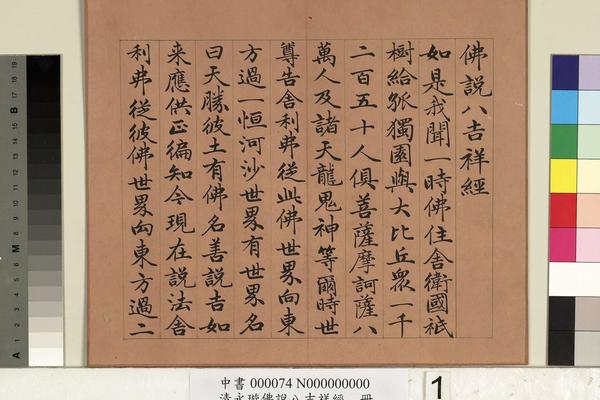 佛說八吉祥經
如是我聞一時佛住舍衛國祇
樹給孤獨園與大比丘衆一千
二百五十人俱菩薩摩訶薩八
萬人及諸天龍鬼神等爾時世
尊告舍利弗從此佛世界向東
方過一恒河沙世界有世界名
曰天勝彼土有佛名善說吉如
来應供正徧知今現在說法舍
利弗從彼佛世界向東方過二
中書 000074 N000000000
清永瑢佛說八吉祥經 冊
1